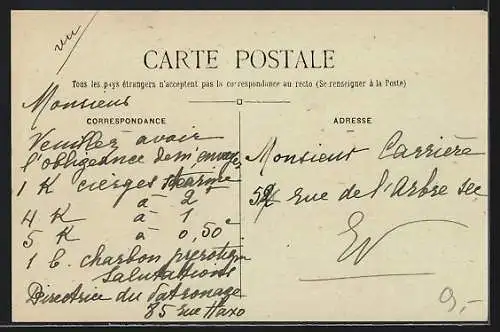 vu
CARTE POSTALE
Tous les pays étrangers n'acceptent pas la correspondance au recto (Se renseigner à la Poste)
CORRESPONDANCE
Monsieur
Veuillez avoir
l'obligeance de m'envoyer
1 K cierges stearine
à 2
4 K à 1
5 K à 0,50 c
1 b. charbon
Salutations
Directrice du Patronage
85 rue Haxo
ADRESSE
Monsieur Carrière
52 rue de l'Arbre sec
EV
9,-